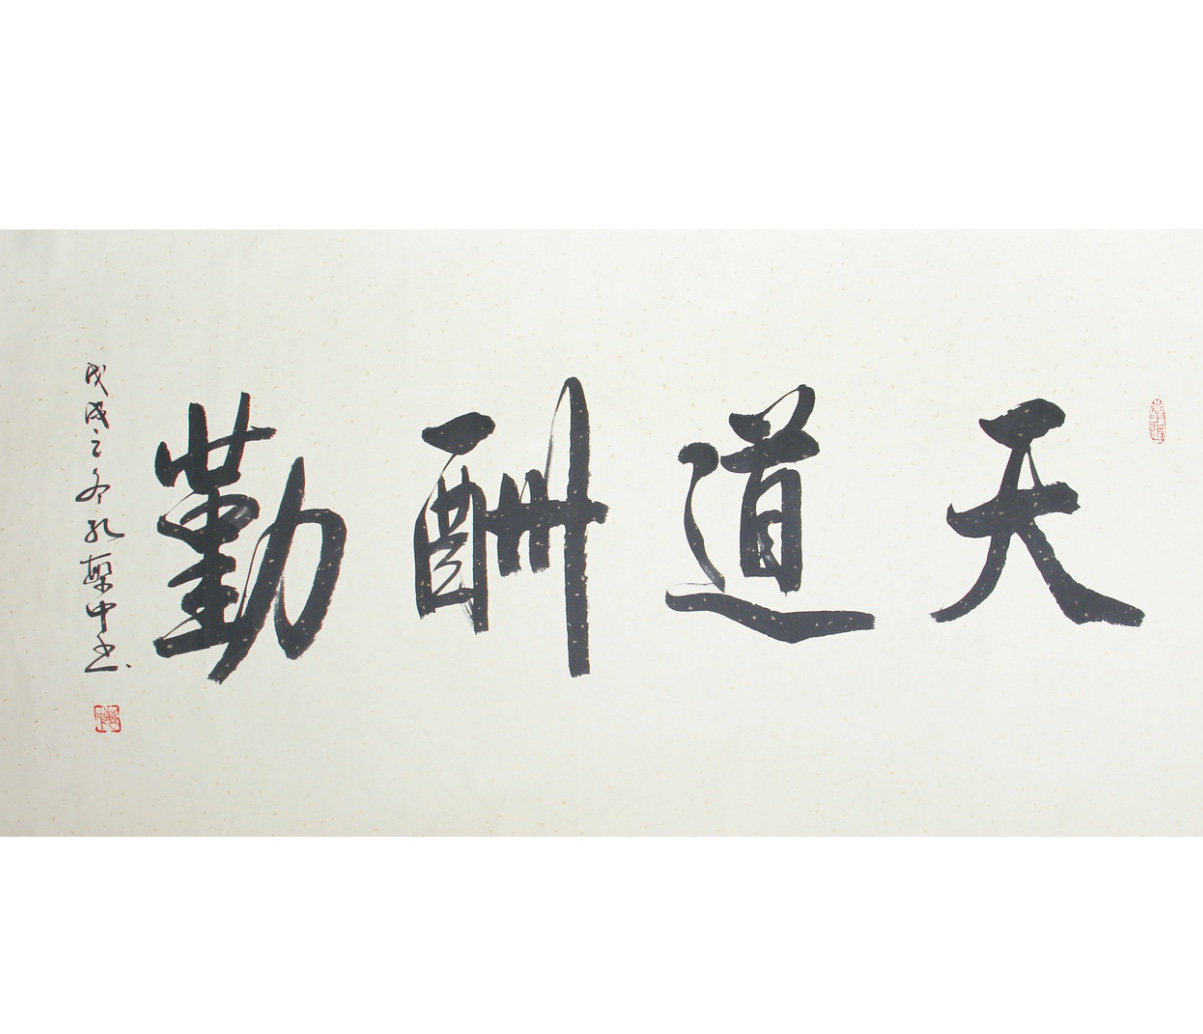 天道酬勤
戊戌之冬孔繁中书